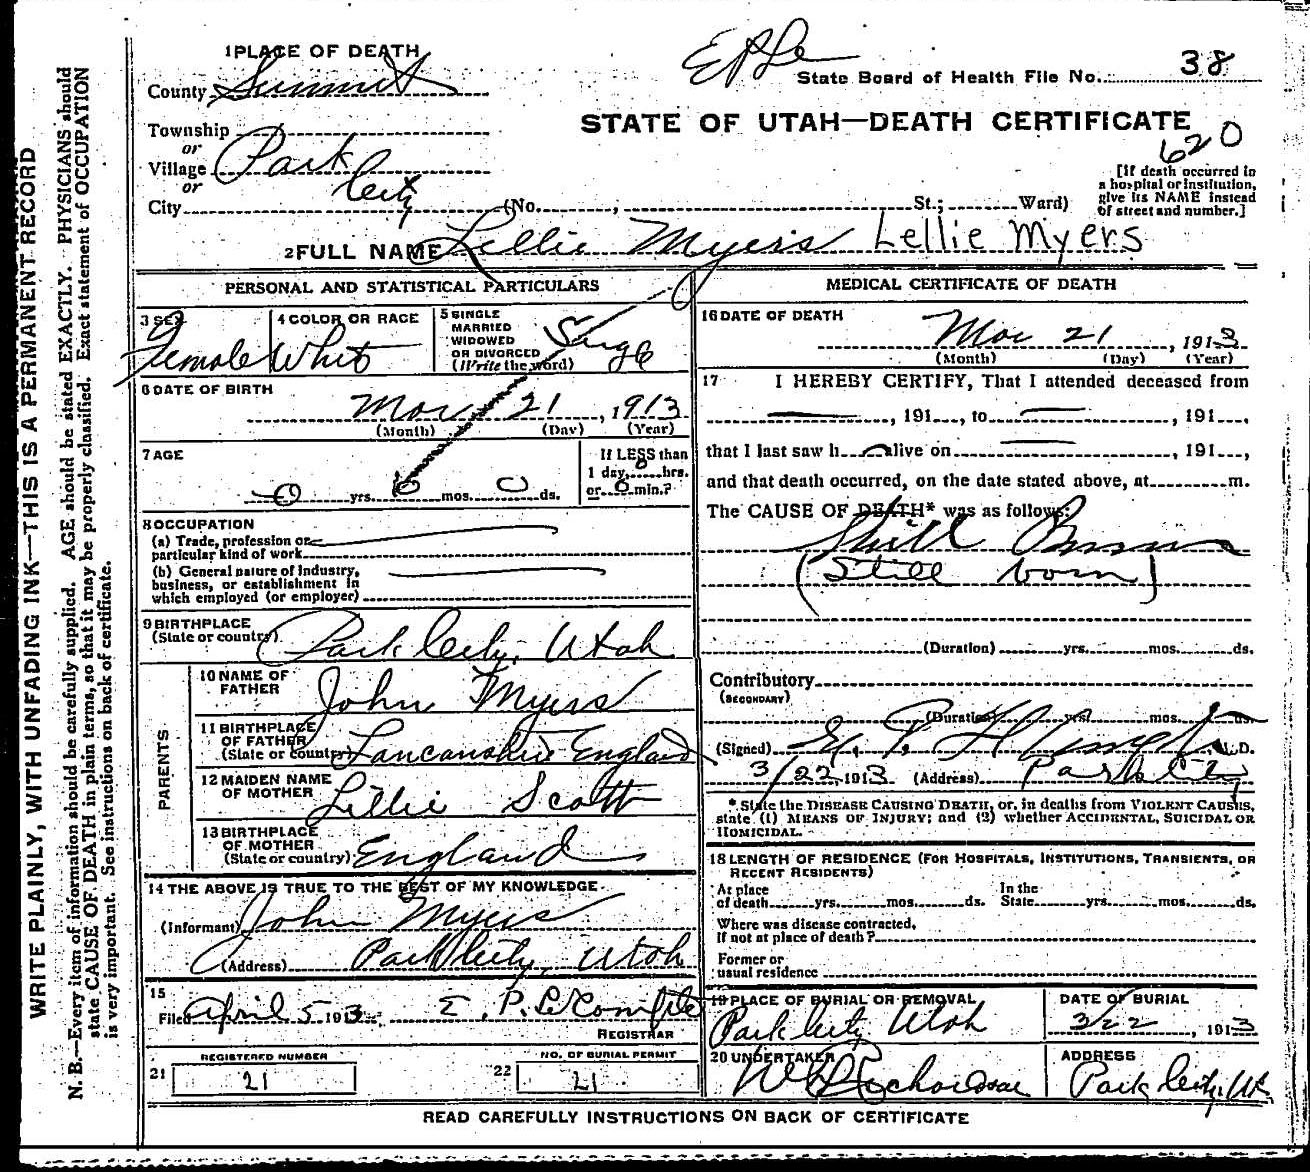 WRITE PLAINLY, WITH UNFADING INK—THIS IS A PERMANENT RECORD
N. B.—Every item of information should be carefully supplied. AGE should be stated EXACTLY. PHYSICIANS should
state CAUSE OF DEATH in plain terms, so that it may be properly classified. Exact statement of OCCUPATION
is very important. See instructions on back of certificate.
1 PLACE OF DEATH
County Summit
Township
or
Village Park City
or
City (No. , St.; Ward)
State Board of Health File No. 38
STATE OF UTAH—DEATH CERTIFICATE
620
[If death occurred in
a hospital or institution,
give its NAME instead
of street and number.]
2 FULL NAME Lellie Myers Lellie Myers
PERSONAL AND STATISTICAL PARTICULARS
3 SEX Female
4 COLOR OR RACE White
5 SINGLE
MARRIED
WIDOWED
OR DIVORCED
(Write the word) Single
6 DATE OF BIRTH
Mar 21, 1913
(Month) (Day) (Year)
7 AGE
0 yrs. 0 mos. 0 ds.
If LESS than
1 day, 0 hrs.
or 0 min.?
8 OCCUPATION
(a) Trade, profession or
particular kind of work
(b) General nature of industry,
business, or establishment in
which employed (or employer)
9 BIRTHPLACE
(State or country) Park City, Utah
PARENTS
10 NAME OF
FATHER John Myers
11 BIRTHPLACE
OF FATHER
(State or country) Lancanshire England
12 MAIDEN NAME
OF MOTHER Lillie Scott
13 BIRTHPLACE
OF MOTHER
(State or country) England
14 THE ABOVE IS TRUE TO THE BEST OF MY KNOWLEDGE
(Informant) John Myers
(Address) Park City, Utah
15
Filed April 5 1913 E. P. LeCompte
REGISTRAR
REGISTERED NUMBER
21 21
NO. OF BURIAL PERMIT
22 21
MEDICAL CERTIFICATE OF DEATH
16 DATE OF DEATH
Mar 21, 1913
(Month) (Day) (Year)
17 I HEREBY CERTIFY, That I attended deceased from
, 191 , to , 191 ,
that I last saw h alive on , 191 ,
and that death occurred, on the date stated above, at m.
The CAUSE OF DEATH* was as follows:
Still Born
(Still born)
(Duration) yrs. mos. ds.
Contributory
(SECONDARY)
(Duration) yrs. mos. ds.
(Signed) M.D.
3/22, 1913 (Address) Park City
* State the DISEASE CAUSING DEATH, or, in deaths from VIOLENT CAUSES,
state (1) MEANS OF INJURY; and (2) whether ACCIDENTAL, SUICIDAL OR
HOMICIDAL.
18 LENGTH OF RESIDENCE (FOR HOSPITALS, INSTITUTIONS, TRANSIENTS, OR
RECENT RESIDENTS)
At place
of death yrs. mos. ds.
In the
State yrs. mos. ds.
Where was disease contracted,
If not at place of death?
Former or
usual residence
19 PLACE OF BURIAL OR REMOVAL
Park City Utah
DATE OF BURIAL
3/22, 1913
20 UNDERTAKER
ADDRESS
Park City, Ut.
READ CAREFULLY INSTRUCTIONS ON BACK OF CERTIFICATE